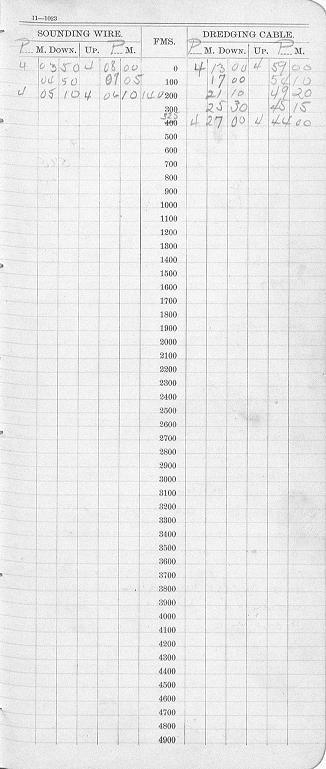 11—1023
SOUNDING WIRE. FMS. DREDGING CABLE.
P. M. DOWN. UP. P. M. P. M. DOWN. UP. P. M.
4 03 50 4 08 00 0 4 13 00 4 59 00
04 50 07 05 100 17 00 54 10
4 05 10 4 06 10 200 21 10 49 20
300 25 30 45 15
325
400 4 27 00 4 44 00
500
600
700
800
900
1000
1100
1200
1300
1400
1500
1600
1700
1800
1900
2000
2100
2200
2300
2400
2500
2600
2700
2800
2900
3000
3100
3200
3300
3400
3500
3600
3700
3800
3900
4000
4100
4200
4300
4400
4500
4600
4700
4800
4900